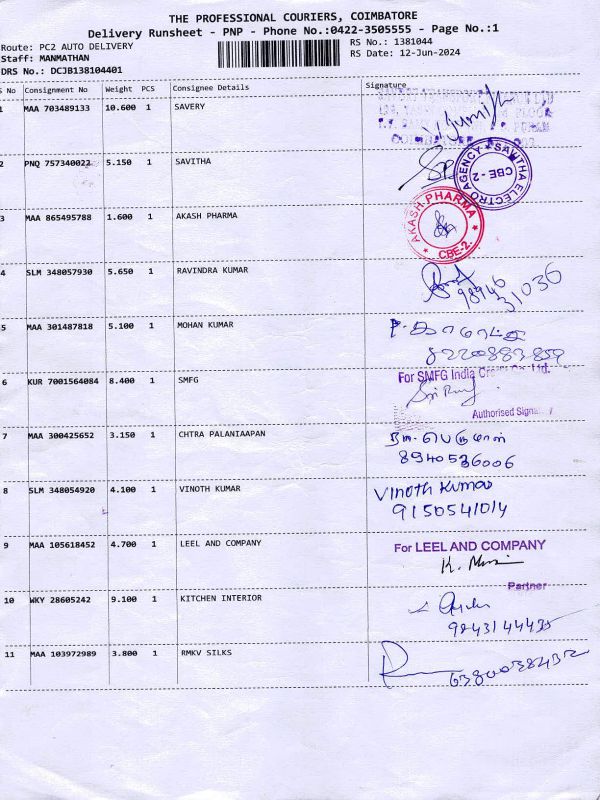 THE PROFESSIONAL COURIERS, COIMBATORE
Delivery Runsheet - PNP - Phone No.:0422-3505555 - Page No.:1
Route: PC2 AUTO DELIVERY
RS No.: 1381044
Staff: MANMATHAN
RS Date: 12-Jun-2024
DRS No.: DCJB138104401
S No Consignment No Weight PCS Consignee Details Signature
1 MAA 703489133 10.600 1 SAVERY
2 PNQ 757340022 5.150 1 SAVITHA
SAVITHA ELECTRO AGENCY CBE - 2
3 MAA 865495788 1.600 1 AKASH PHARMA
AKASH PHARMA CBE-2.
4 SLM 348057930 5.650 1 RAVINDRA KUMAR
98946
31036
5 MAA 301487818 5.100 1 MOHAN KUMAR
8220883859
6 KUR 7001564084 8.400 1 SMFG
For SMFG India Ltd.
Authorised Signatory
7 MAA 300425652 3.150 1 CHTRA PALANIAAPAN
8940536006
8 SLM 348054920 4.100 1 VINOTH KUMAR
Vinoth Kumar
9150541014
9 MAA 105618452 4.700 1 LEEL AND COMPANY
For LEEL AND COMPANY
Partner
10 WKY 28605242 9.100 1 KITCHEN INTERIOR
11 MAA 103972989 3.800 1 RMKV SILKS